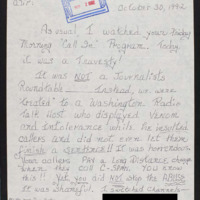 October 30, 1992
As usual I watched your Friday
Morning "Call In" Program. Today
it was a Travesty!
It was NOT a Journalists
Roundtable. Instead, we were
treated to a Washington Radio
Talk Host who displayed Venom
and Intolerance while he insulted
callers and did not even let them
finish a sentence!! It was horrendous.
Your callers Pay a Long Distance charge
when they call C-Span. You know
this! Yet you did NOT stop the ABUSE
It was shameful. I switched channels